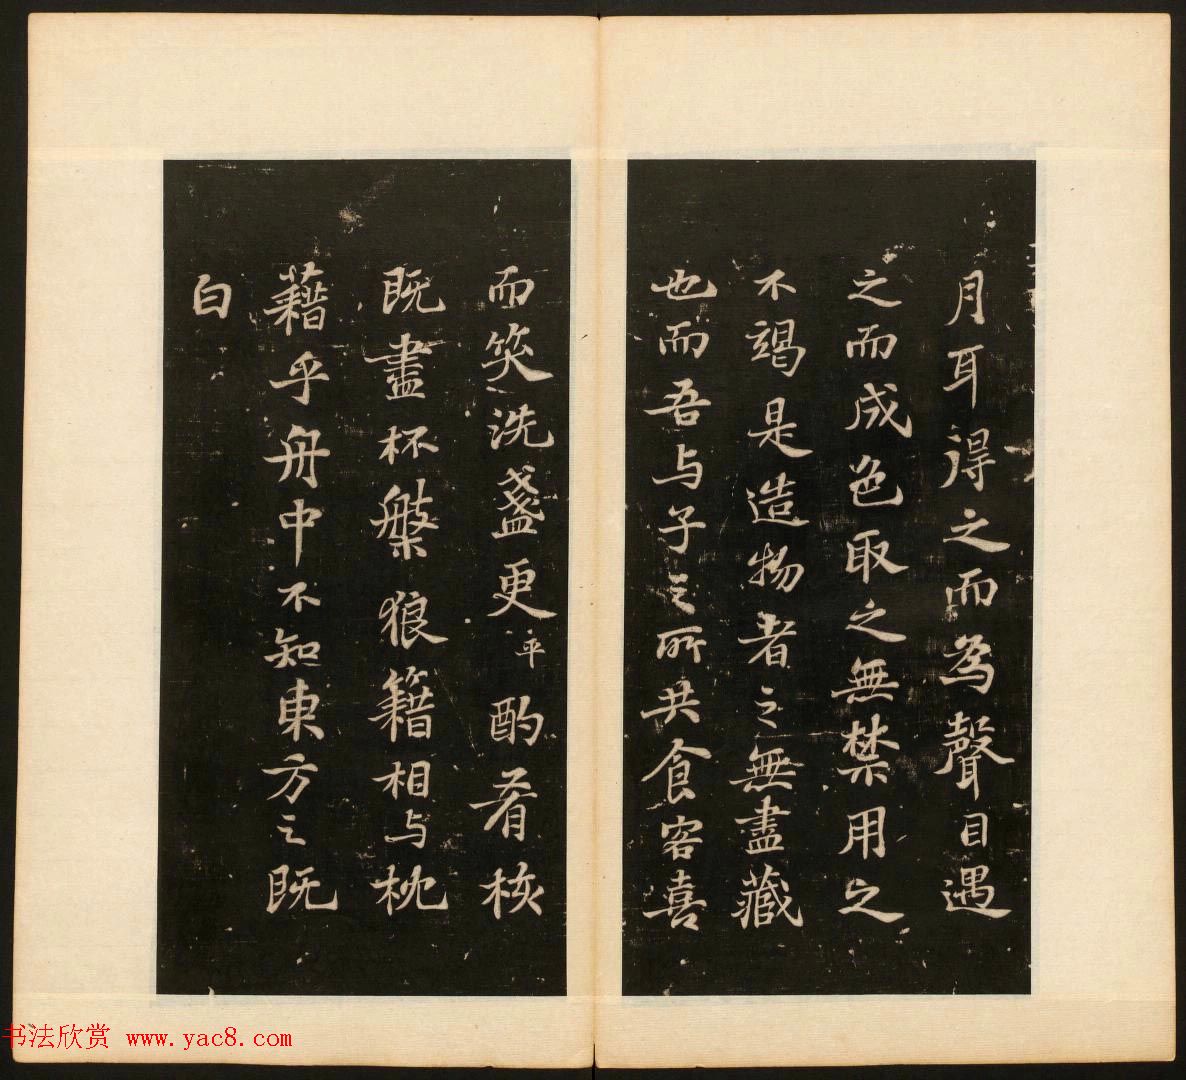 月耳得之而為聲目遇
之而成色取之無禁用之
不竭是造物者之無盡藏
也而吾与子之所共食客喜
而笑洗盞更平酌肴核
既盡杯槃狼籍相与枕
藉乎舟中不知東方之既
白
书法欣赏 www.yac8.com